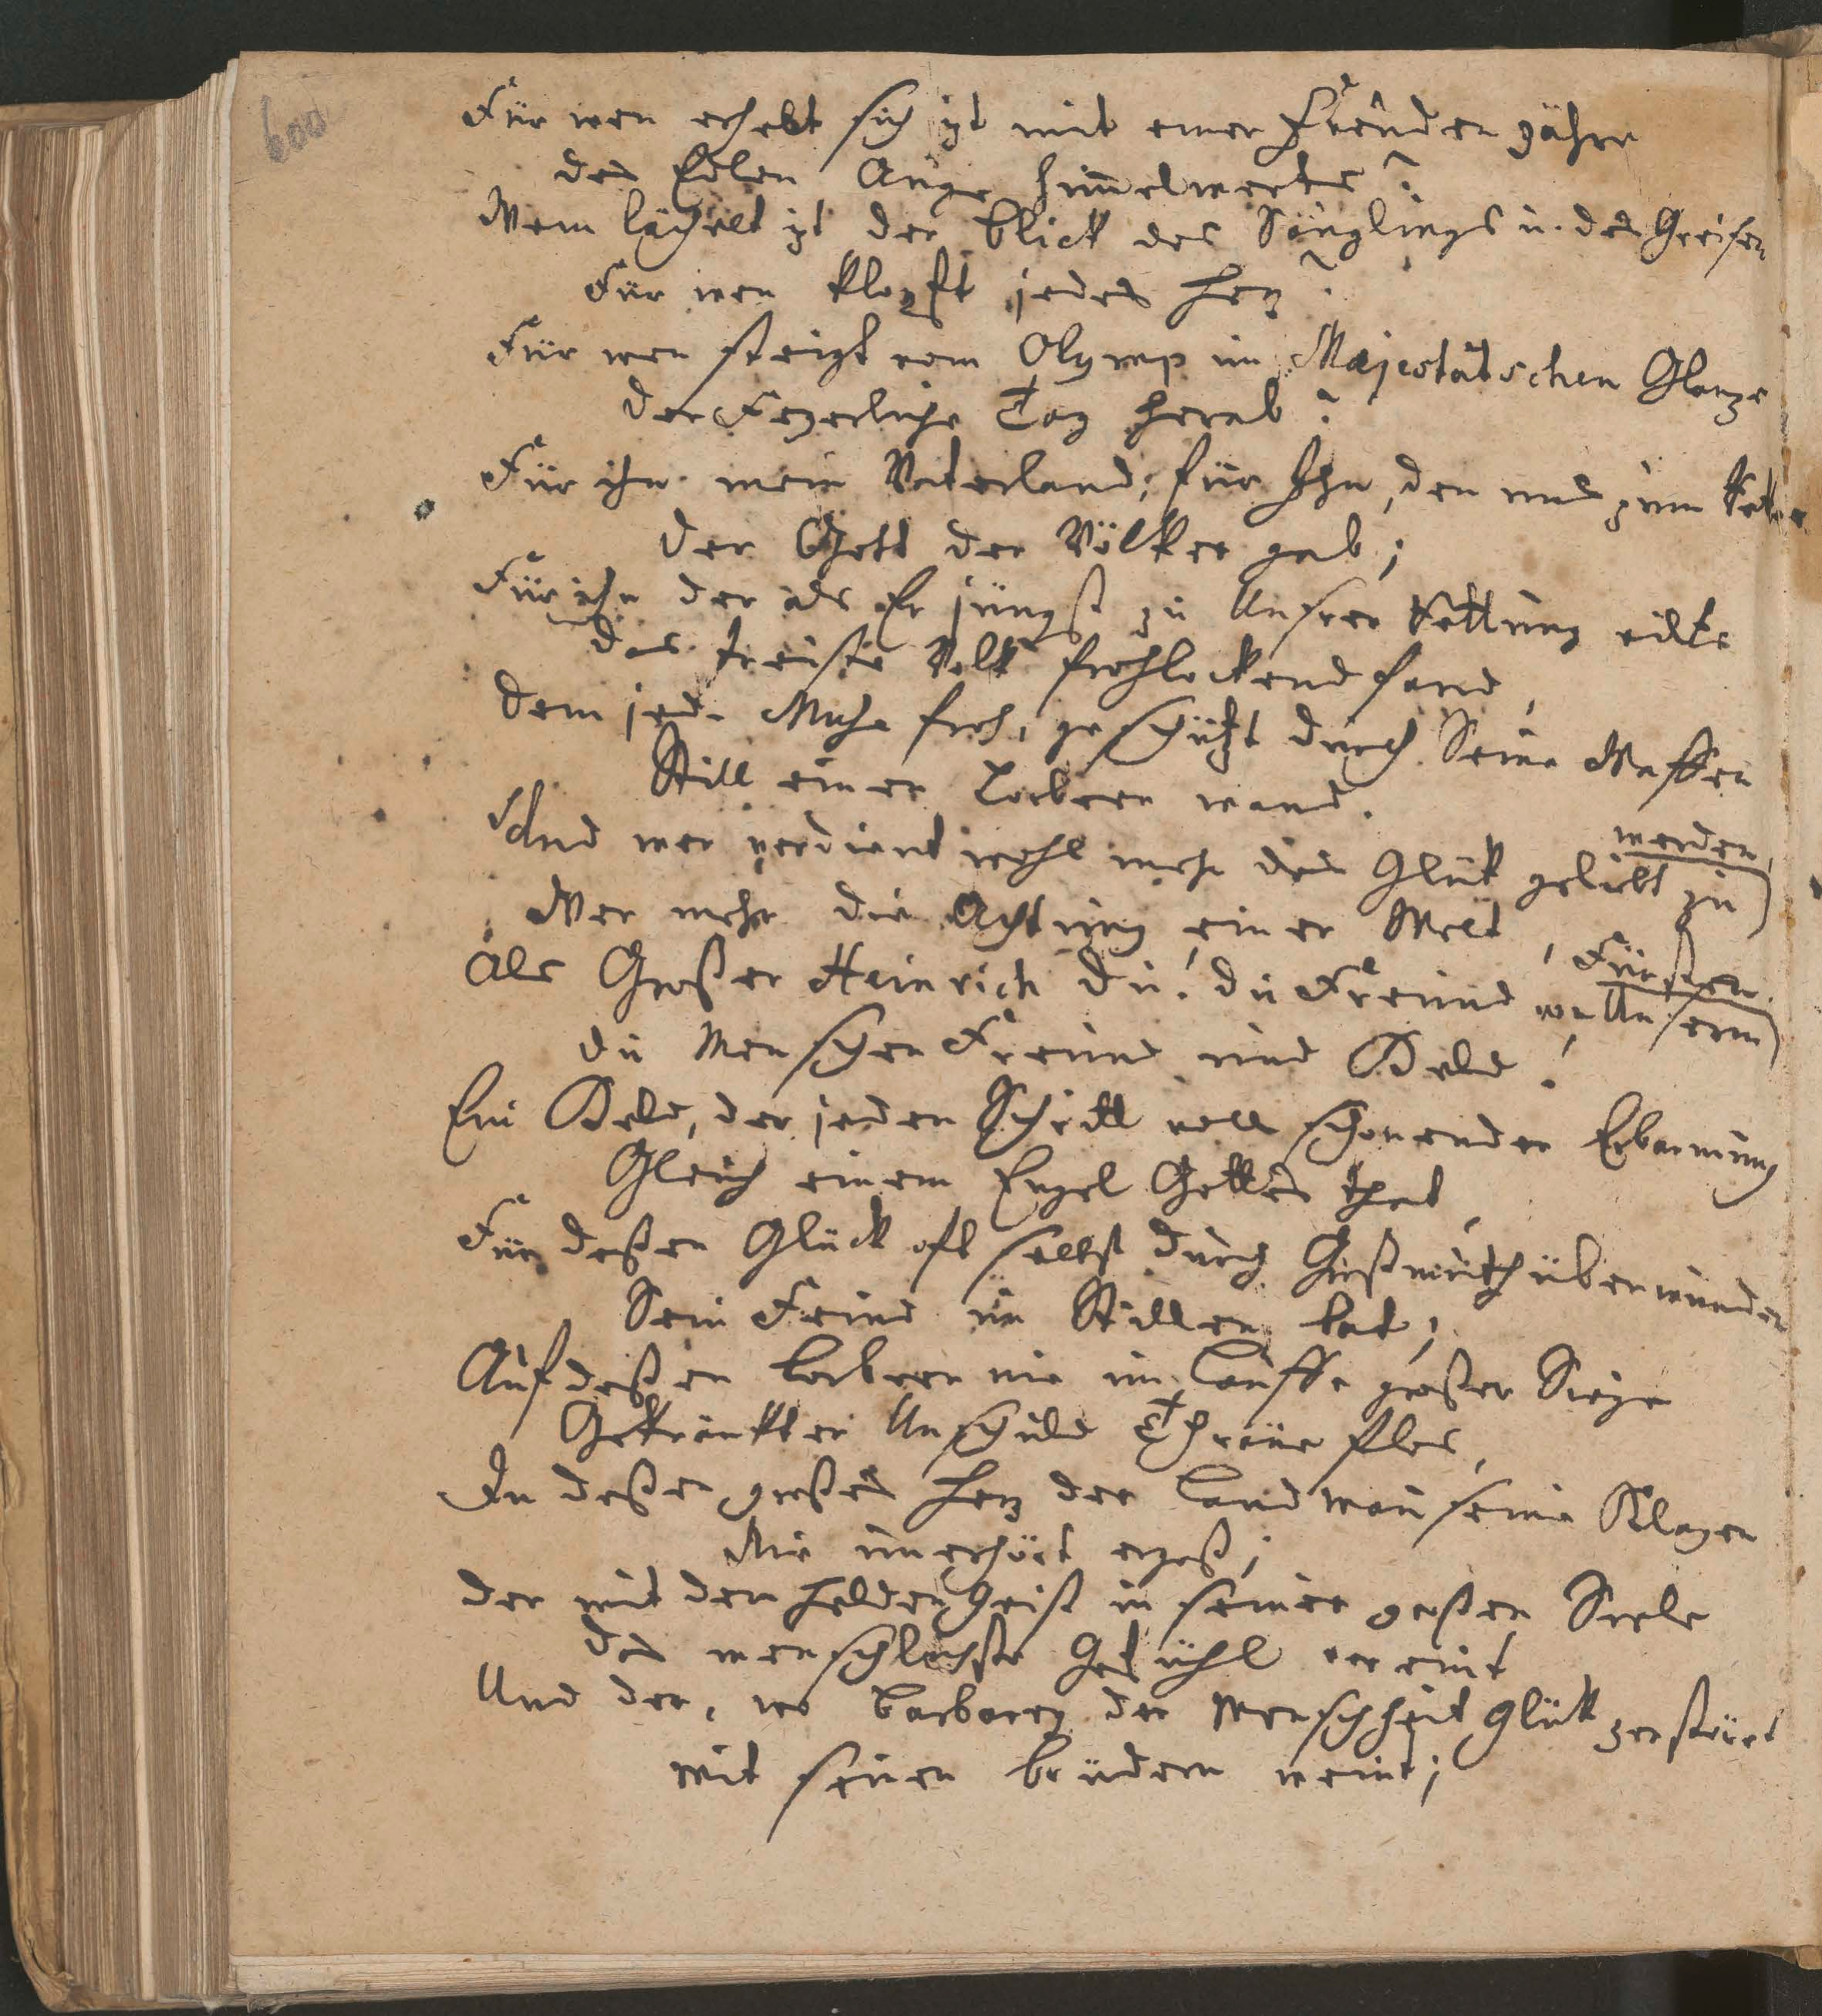 600
Für wen erhebt sich izt mit einer Freuden zähre
des Edlen Auge himelwerts?
Wem lächelt izt der Blick des Säuglings u. des Greisen
Für wen klopft jedes Herz?
Für wen steigt vom Olymp im Majestätschen Glanze
Der Feyerliche Tag herab?
Für ihn mein Vaterland; für Ihn, den uns zum Retter
Der Gott der Völker gab;
Für ihn der als Er jüngst zu Unsrer Rettung eilte
das treuste Volk frohlockend fand,
Dem jede Muse froh, geschüzt durch Seine Waffen
Still einen Lorbeer wand.
Und wer verdient wohl mehr das Glük geliebt zu
werden,
Wer mehr die Achtung einer Welt,
Als Großer Heinrich du! du Freund von Unserm
Fürsten
du Menschen Freund und Held!
Ein Held, der jeden Schritt voll schonender Erbarmung
Gleich einem Engel Gottes that,
Für deßen Glück oft selbst durch Großmuth überwunden
Sein Feind im Stillen bat;
Auf deßen Lorbeern nie im Lauffe großer Siege
Gekränkter Unschuld Thräne flos,
In deßen großes Herz der Landman seine Klagen
Nie unerhört ergoß;
Der mit dem Helden Geist in seiner großen Seele
das menschlichste Gefühl vereint
Und der, wo Barbarey der Menschheit Glük zerstöret
mit seinen Brüdern weint;